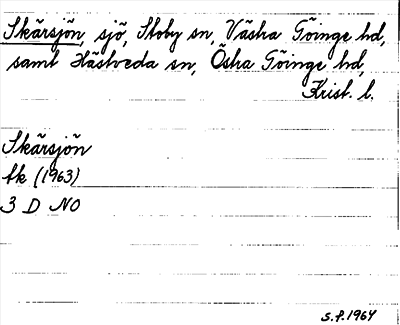 Skärsjön, sjö, Stoby sn, Västra Göinge hd,
samt Hästveda sn, Östra Göinge hd,
Krist. l.
Skärsjön
fk (1963)
3 D NO
S.F. 1964